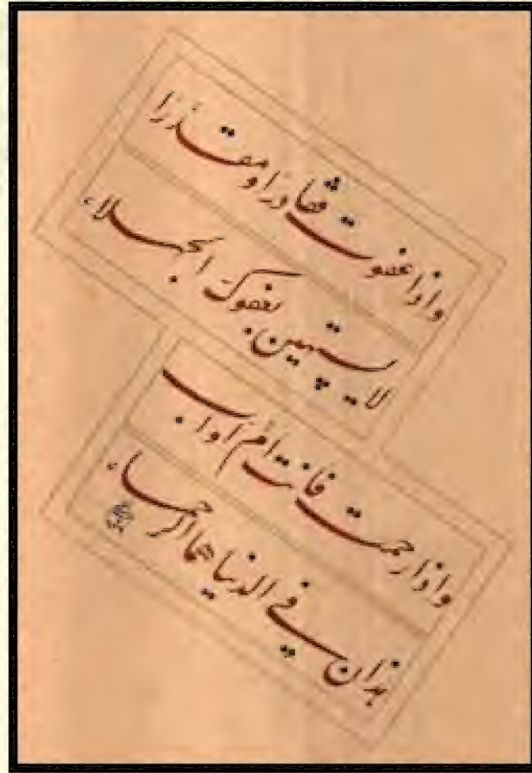 واذا عفوت فقادرا ومقدرا
لا يستهين بعفوك الجهلاء
واذا رحمت فانت أم أو أب
هذان في الدنيا هما الرحماء